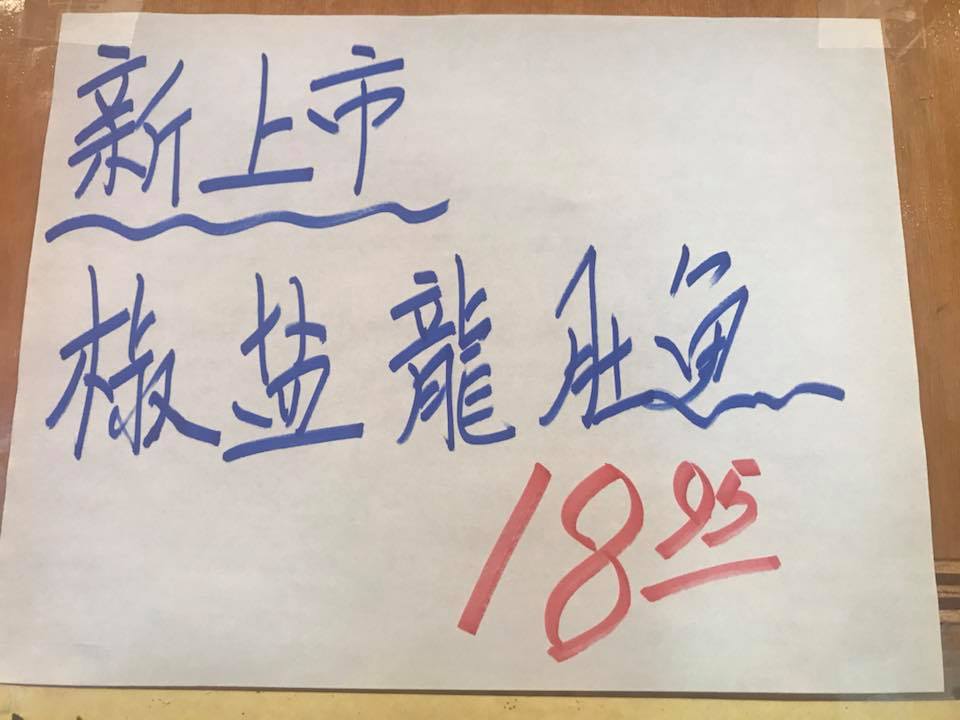 新上市
椒盐龍肚魚
18.95